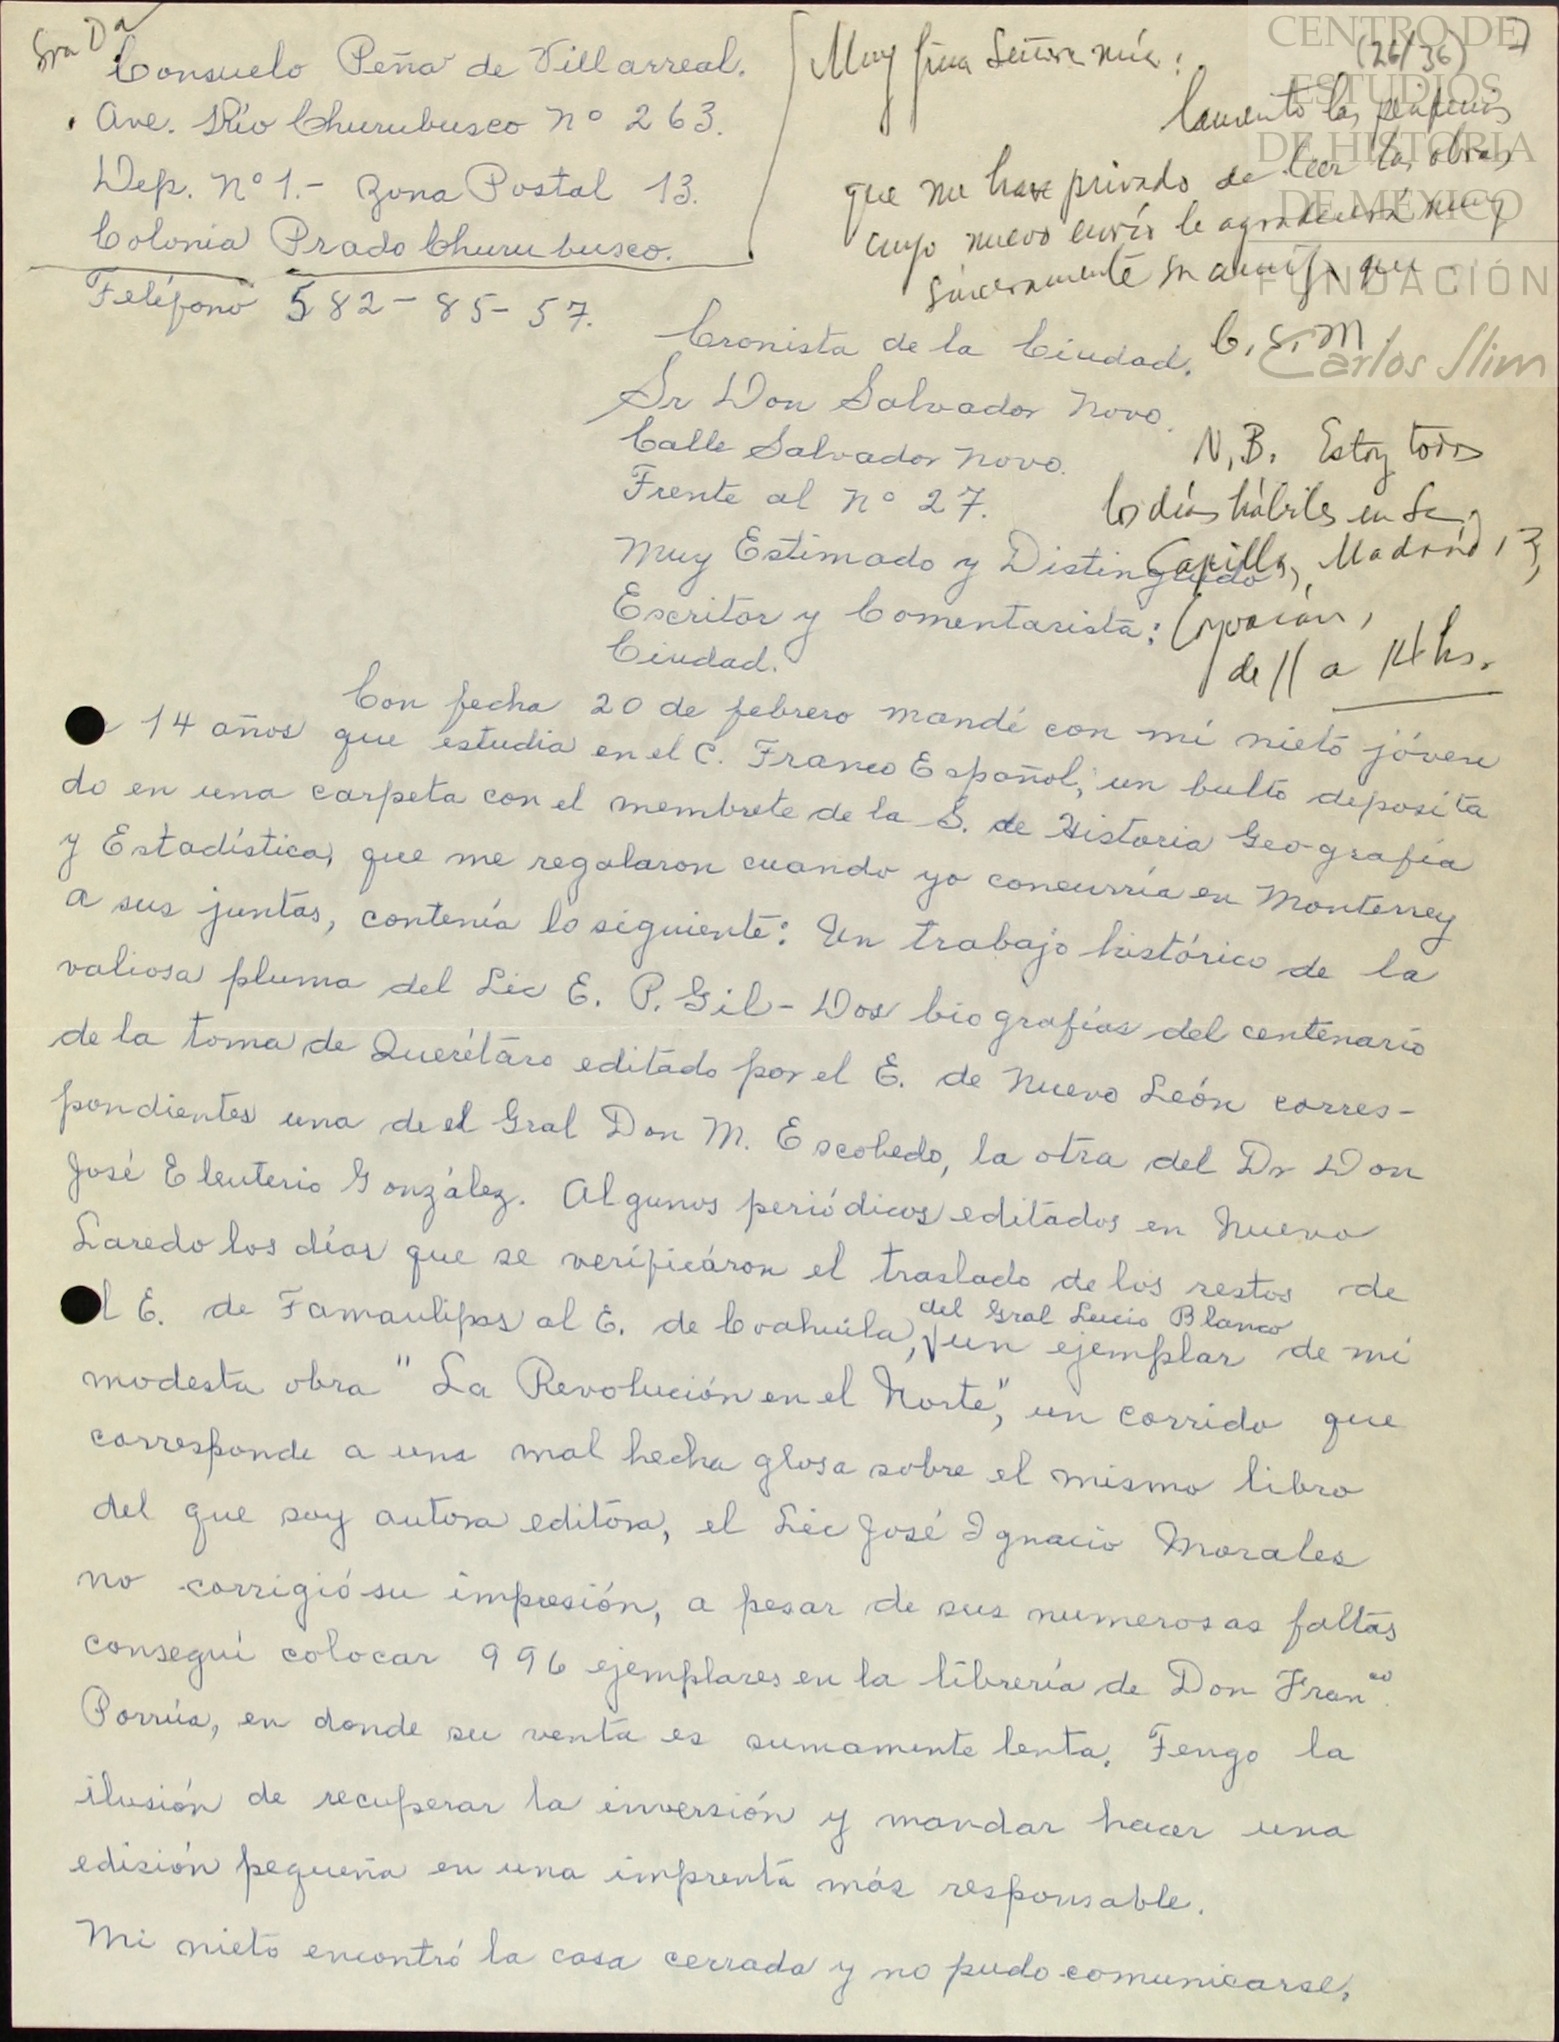 Sra Da
Consuelo Peña de Villarreal.
Ave. Río Churubusco Nº 263.
Dep. Nº 1.- Zona Postal 13.
Colonia Prado Churubusco.
Teléfono 582-85-57.
Muy fina Señora mía:
(26/36)
lamento las
que me han privado de leer las obras
cuyo nuevo envío le agradecerá muy
sinceramente su amigo que
C. S. M
N, B. Estoy todos
los días hábiles en La
Capilla, Madrid, 13,
Coyoacán,
de 11 a 14 hs.
CENTRO DE
ESTUDIOS
DE HISTORIA
DE MÉXICO
FUNDACIÓN
Carlos Slim
Cronista de la Ciudad.
Sr Don Salvador Novo.
Calle Salvador Novo.
Frente al Nº 27.
Muy Estimado y Distinguido
Escritor y Comentarista:
Ciudad.
Con fecha 20 de febrero mandé con mi nieto jóven
14 años que estudia en el C. Franco Español, un bulto deposita
do en una carpeta con el membrete de la S. de Historia Geografía
y Estadística, que me regalaron cuando yo concurría en Monterrey
a sus juntas, contenía lo siguiente: Un trabajo histórico de la
valiosa pluma del Lic E. P. Gil- Dos biografías del centenario
de la toma de Querétaro editado por el E. de Nuevo León corres-
pondientes una de el Gral Don M. Escobedo, la otra del Dr Don
José Eleuterio González. Algunos periódicos editados en Nuevo
Laredo los días que se verificáron el traslado de los restos de
l E. de Tamaulipas al E. de Coahuila, del Gral Lucio Blanco un ejemplar de mi
modesta obra "La Revolución en el Norte", un corrido que
corresponde a una mal hecha glosa sobre el mismo libro
del que soy autora editóra, el Lic José Ignacio Morales
no corrigió su impresión, a pesar de sus numerosas faltas
conseguí colocar 996 ejemplares en la librería de Don Franco.
Porrúa, en donde su venta es sumamente lenta. Tengo la
ilusión de recuperar la inversión y mandar hacer una
edisión pequeña en una imprenta más responsable.
Mi nieto encontró la casa cerrada y no pudo comunicarse,